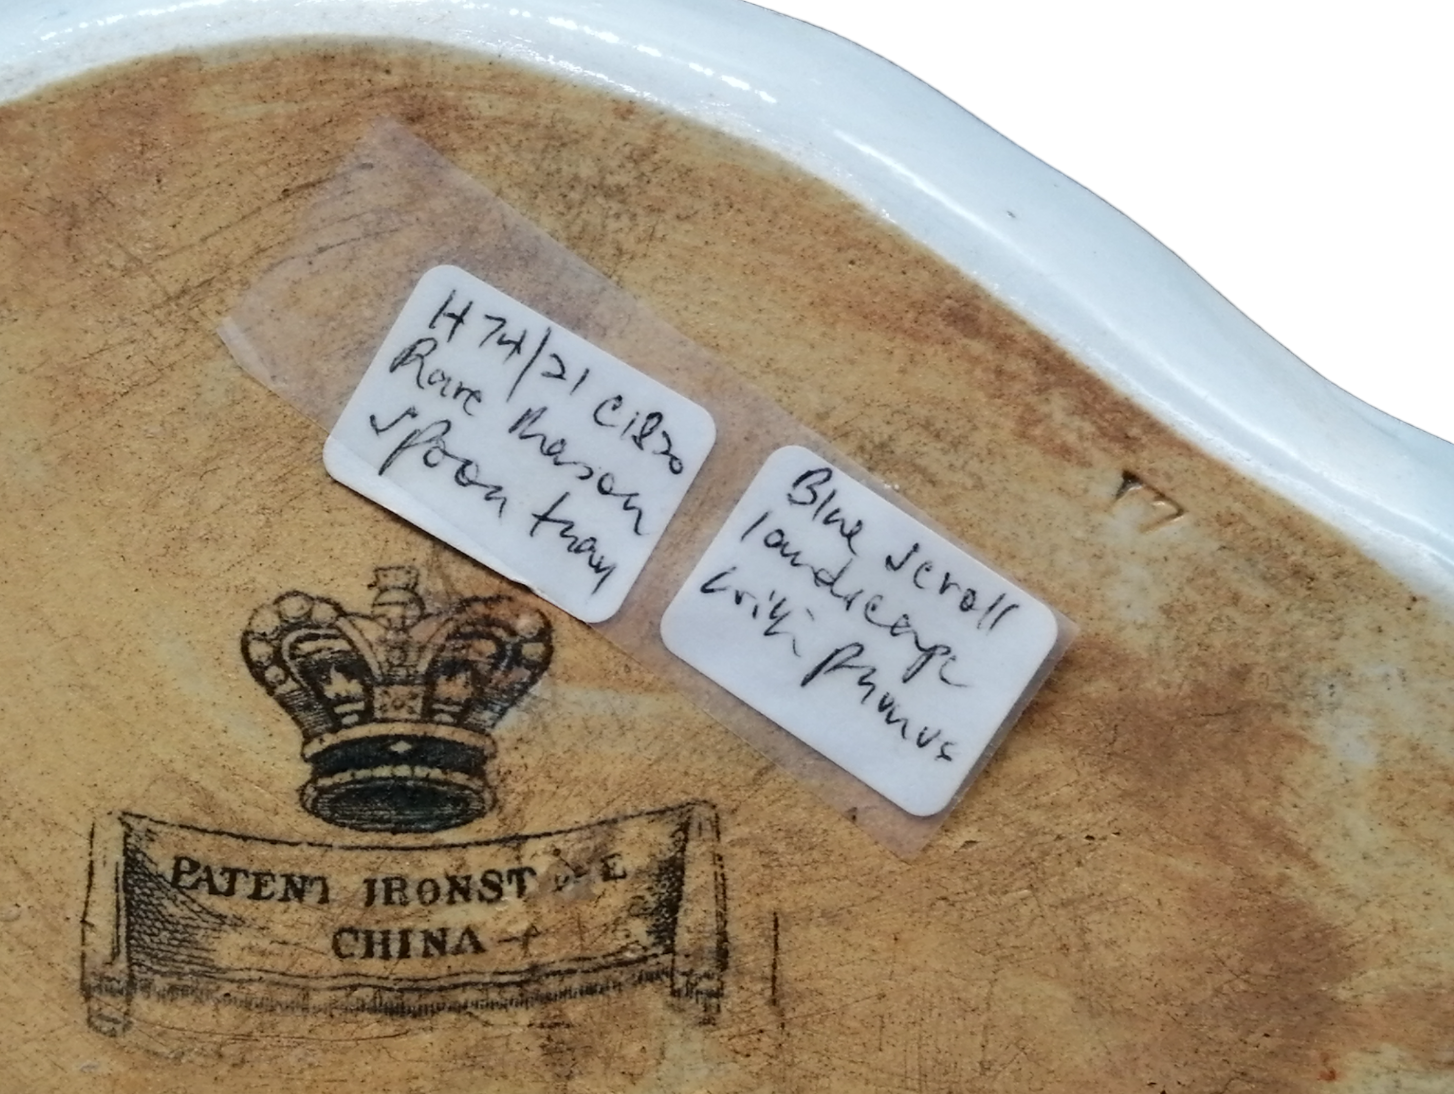 H 74/21 C1820
Rare Mason
spoon tray
Blue scroll
landscape
with prunus
17
PATENT IRONST E
CHINA